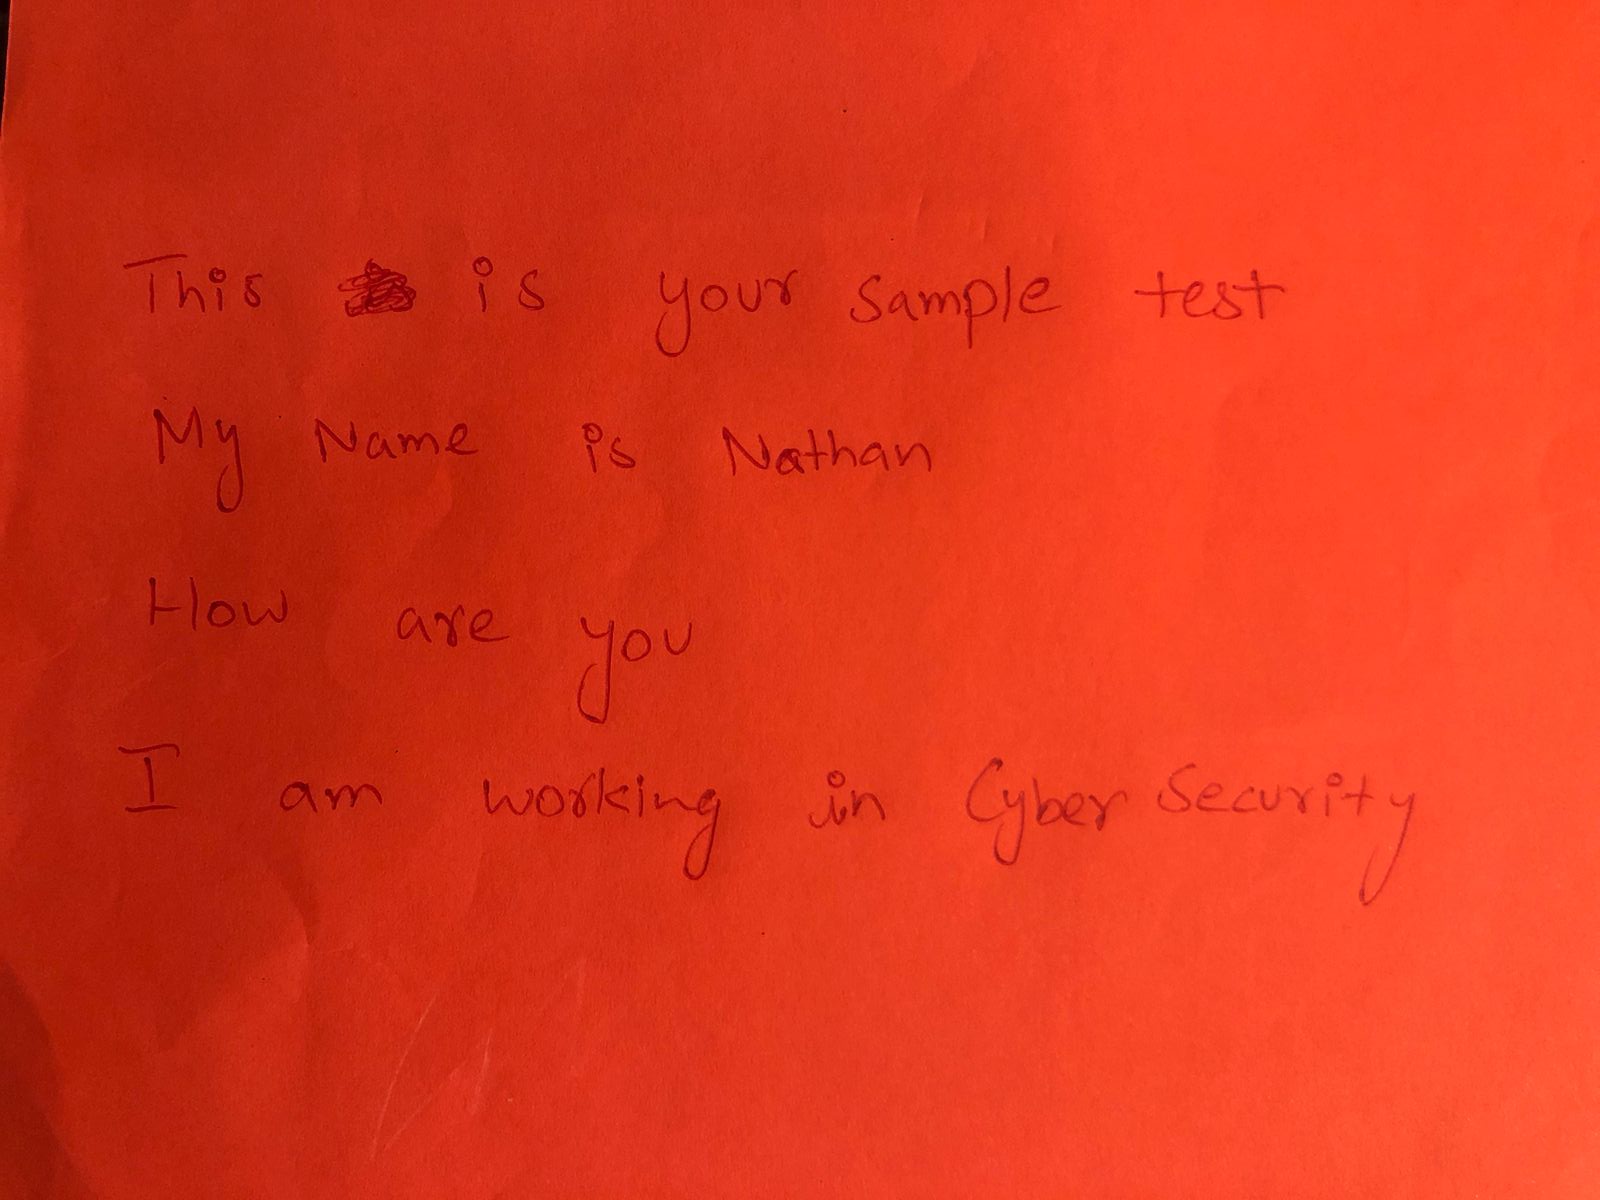 This is your sample test
My Name is Nathan
How are you
I am working in Cyber Security